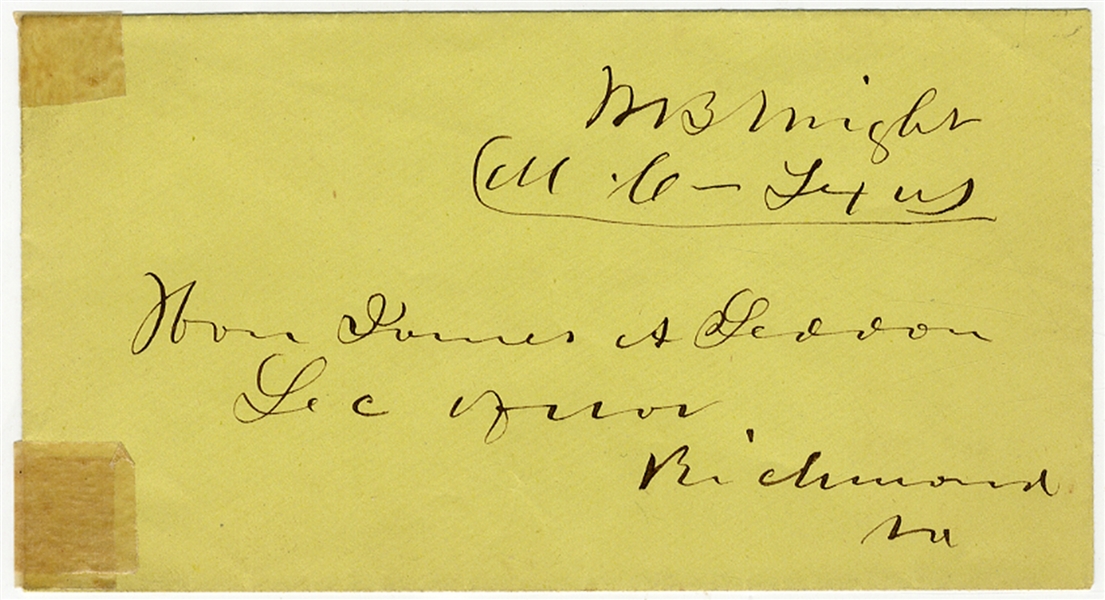 W B Wright
M. C - Texas
Hon James A Seddon
Sec of War
Richmond
Va